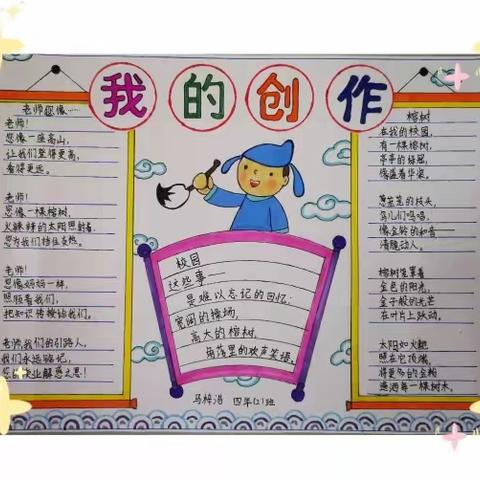 我的创作
老师您像……
老师!
您像一座高山,
让我们登得更高,
看得更远。
老师!
您像一棵榕树,
火辣辣的太阳照射着,
您为我们挡住炎热。
老师!
您像妈妈一样,
照顾着我们,
把知识传授给我们。
老师,我们的引路人,
我们永远铭记,
您的授业解惑之恩!
校园
这些事——
是难以忘记的回忆:
宽阔的操场,
高大的榕树,
角落里的欢声笑语。
马梓浩 四年(2)班
榕树
在我的校园,
有一棵榕树,
亭亭的绿冠,
像温着华姿。
葱茏茏的枝头,
鸟儿们鸣唱,
像金铃的和音——
清脆动人。
榕树笼罩着
金色的阳光,
金子般的光芒
在叶片上跃动。
太阳如火靶
照在它顶端,
将更多的金粉
遍洒每一棵树木。